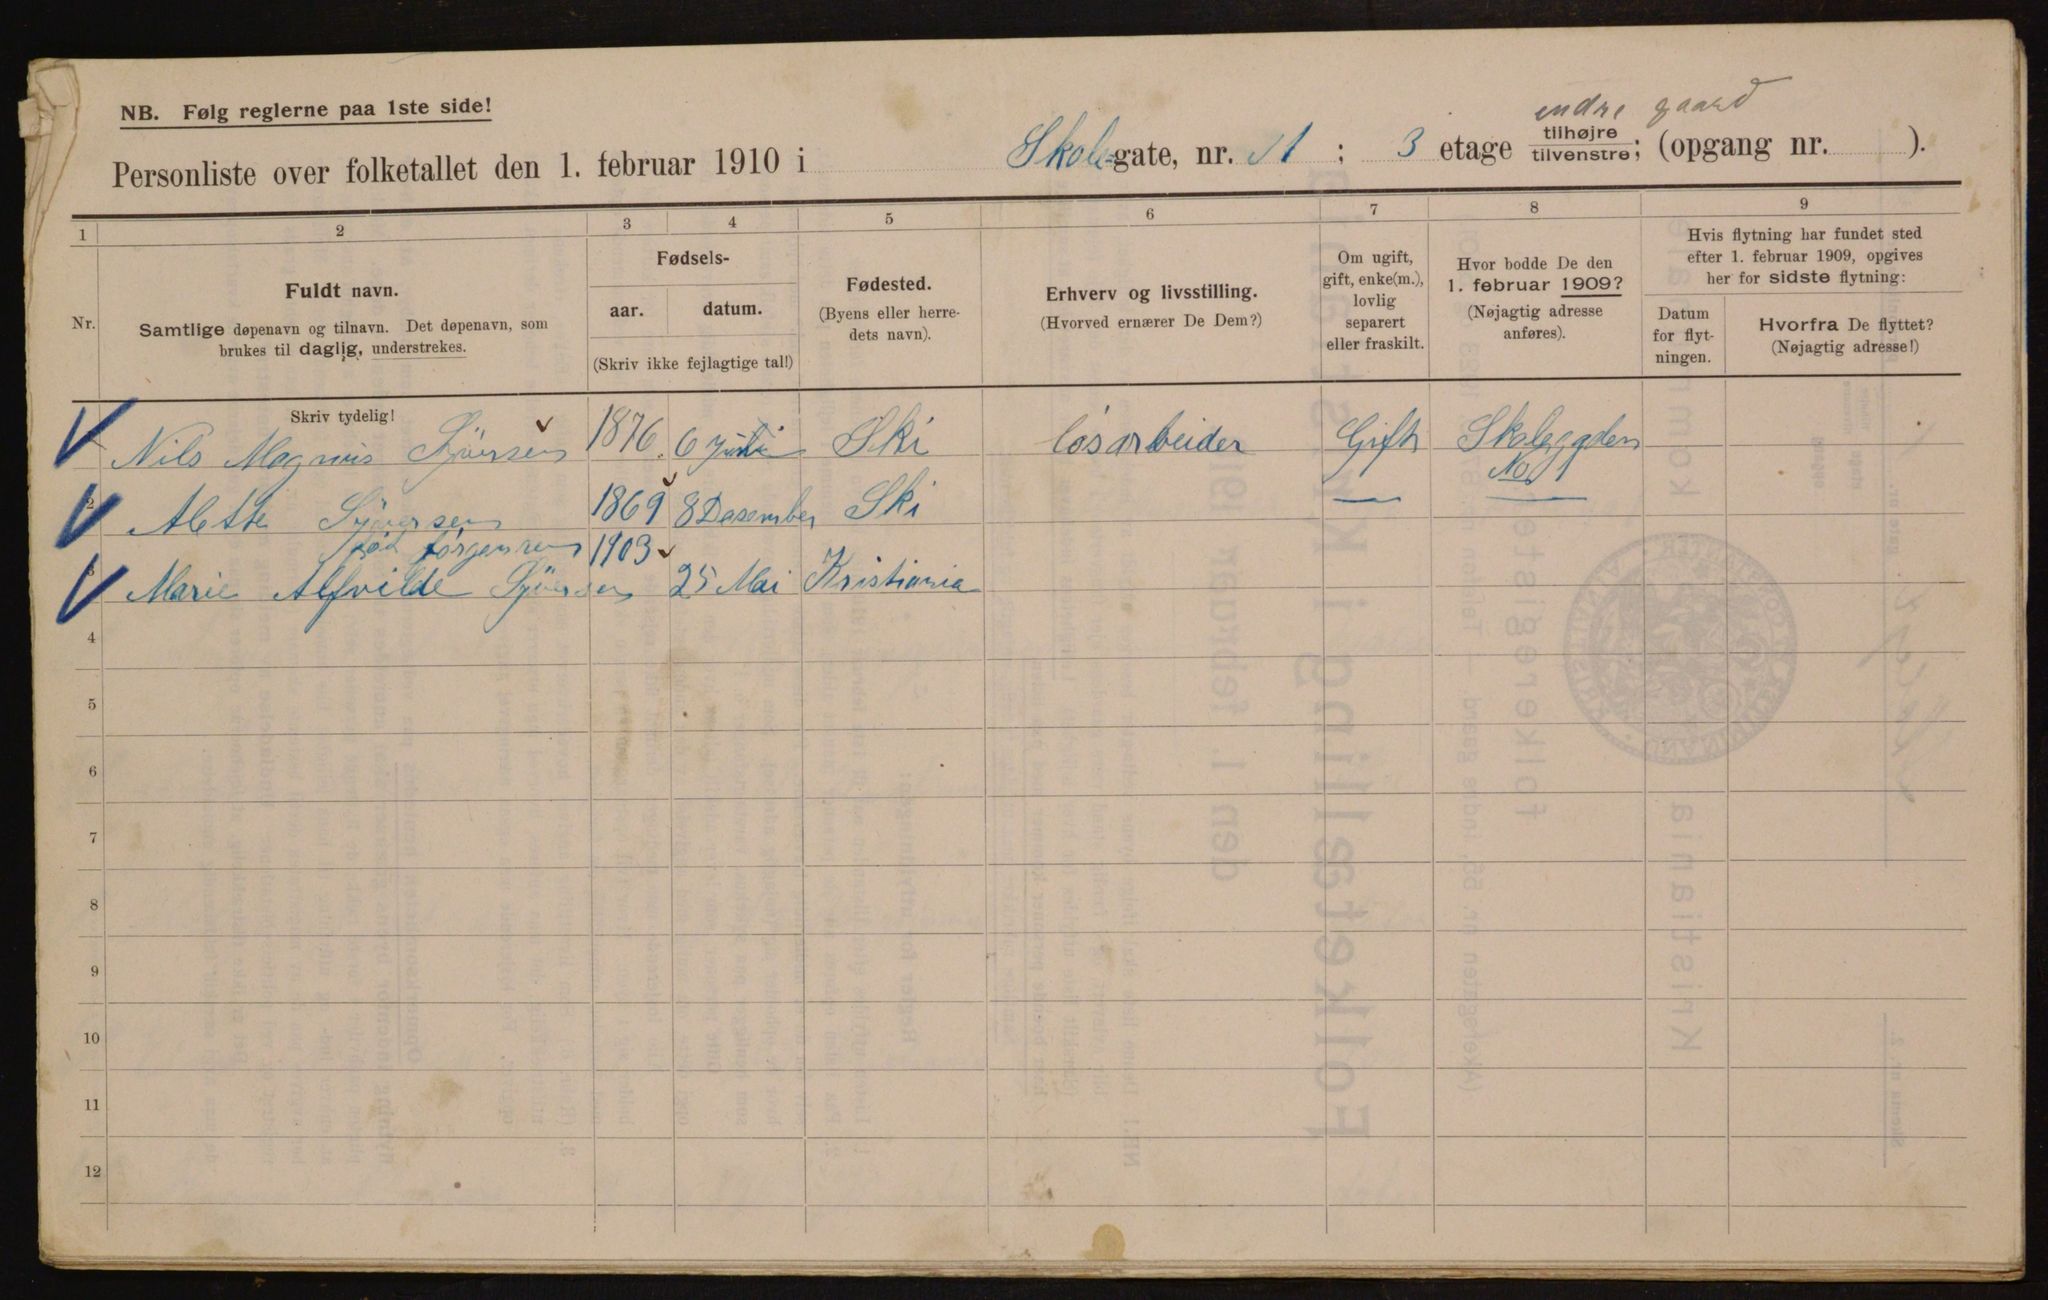 endre gaard
NB. Følg reglerne paa 1ste side!
Personliste over folketallet den 1. februar 1910 i Skole-gate, nr. 11 ; 3 etage tilhøjre / tilvenstre; (opgang nr. ).
1 2 3 4 5 6 7 8 9
Nr.
Fuldt navn.
Samtlige døpenavn og tilnavn. Det døpenavn, som
brukes til daglig, understrekes.
Fødsels-
aar. datum.
(Skriv ikke fejlagtige tal!)
Fødested.
(Byens eller herre-
dets navn).
Erhverv og livsstilling.
(Hvorved ernærer De Dem?)
Om ugift,
gift, enke(m.),
lovlig
separert
eller fraskilt.
Hvor bodde De den
1. februar 1909?
(Nøjagtig adresse
anføres).
Hvis flytning har fundet sted
efter 1. februar 1909, opgives
her for sidste flytning:
Datum
for flyt-
ningen.
Hvorfra De flyttet?
(Nøjagtig adresse!)
Skriv tydelig!
Nils Magnus Syversen 1876 6 Ski løsarbeider Gift Skolegaden
No 1
2 Alette Syversen 1869 8 Desember Ski — —
fød Jørgensen
3 Marie Alfvilde Syversen 1903 25 Mai Kristiania
4
5
6
7
8
9
10
11
12